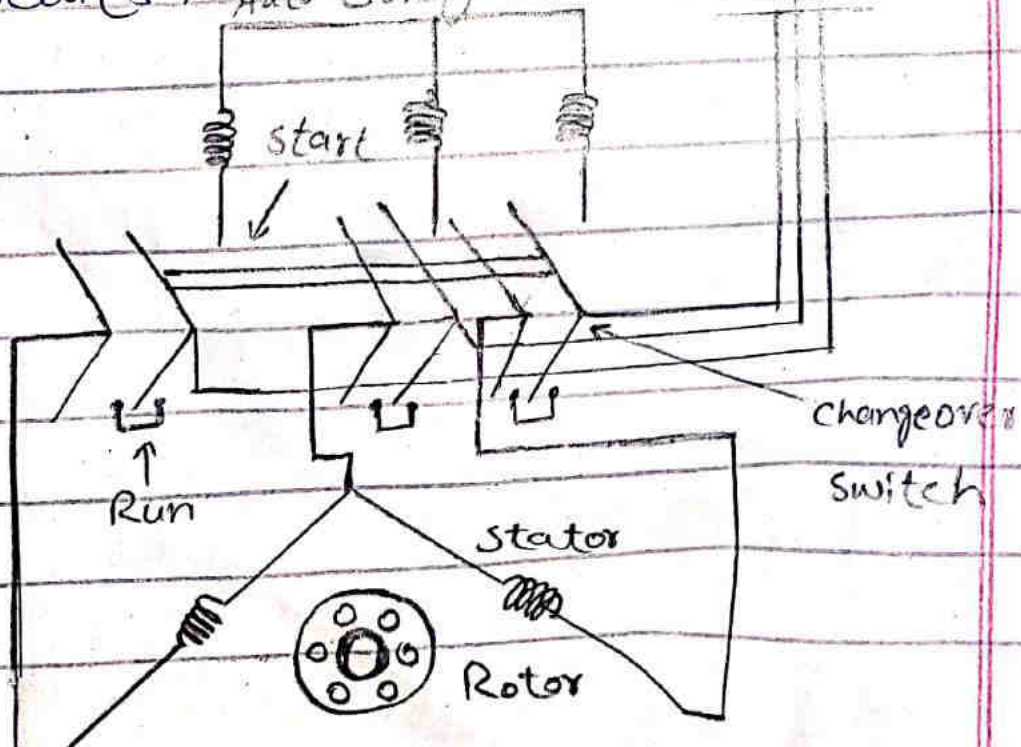 Auto
start
changeover
switch
Run
stator
Rotor